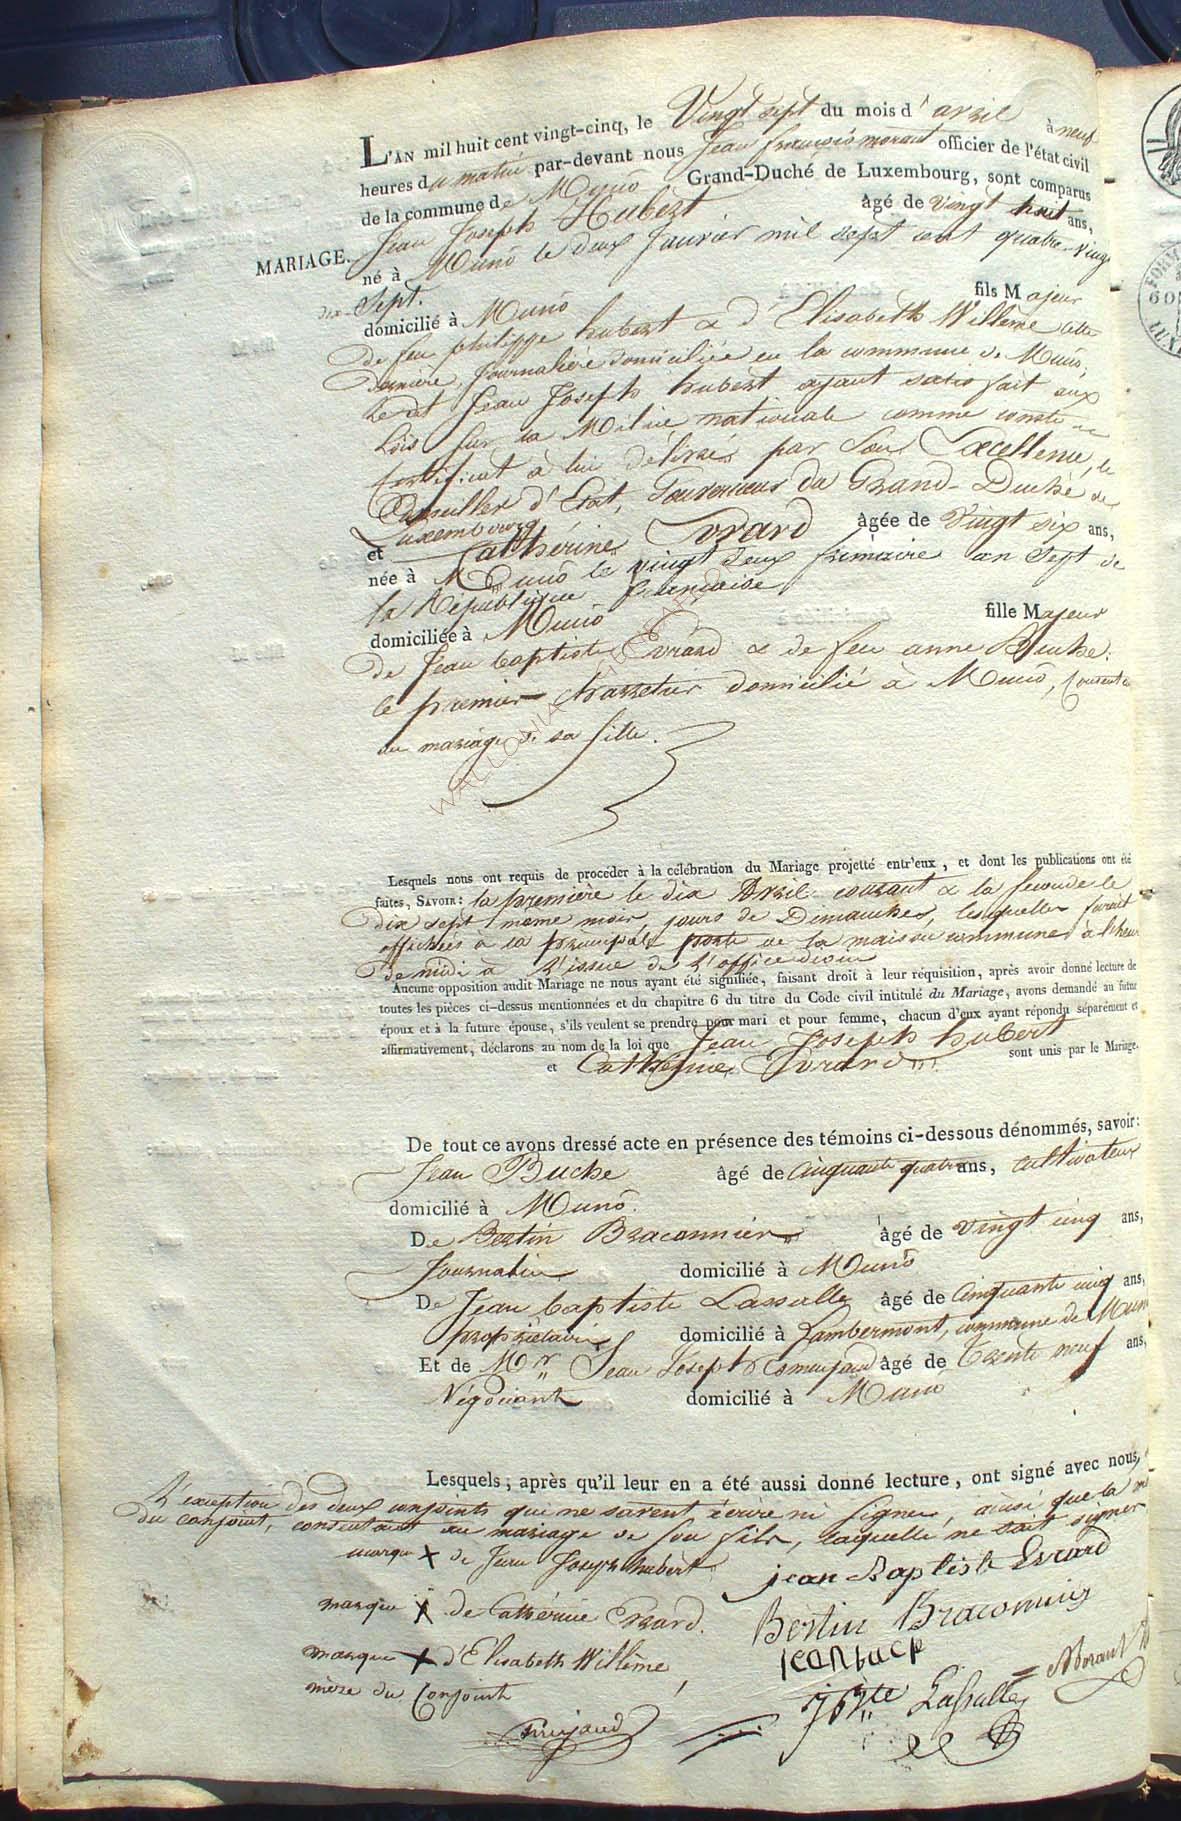 L'AN mil huit cent vingt-cinq, le Vingt sept du mois d'avril à neuf
heures du matin par-devant nous Jean françois morant officier de l'état civil
de la commune de Muno Grand-Duché de Luxembourg, sont comparus
Jean Joseph Hubert âgé de vingt huit ans,
MARIAGE.
né à Muno le deux Janvier mil sept cent quatre-vingt
dix-Sept.
domicilié à Muno fils Majeur
de feu philippe hubert & d'Elisabeth Willême cette
dernière, Journalière domiciliée en la commune de Muno,
Le dit Jean Joseph hubert ayant satisfait aux
Lois sur la Milice nationale comme conste
Certificat à lui délivré par Son Excellence, le
Conseiller d'Etat, Gouverneur du Grand-Duché de
Luxembourg
et Cathérine Evrard âgée de Vingt six ans,
née à Muno le vingt deux frimaire an Sept de
la République française
domiciliée à Muno fille Majeur
de Jean baptiste Evrard & de feu anne Buche.
le premier domicilié à Muno, Consent
au mariage de sa fille.
Lesquels nous ont requis de procéder à la célébration du Mariage projetté entr'eux, et dont les publications ont été
faites, SAVOIR: la première le dix Avril courant & la seconde le
dix sept même mois, jours de Dimanches, lesquelles furent
affichées à la principale porte de la maison commune à l'heure
de midi à l'issue de l'office divin
Aucune opposition audit Mariage ne nous ayant été signifiée, faisant droit à leur réquisition, après avoir donné lecture de
toutes les pièces ci-dessus mentionnées et du chapitre 6 du titre du Code civil intitulé du Mariage, avons demandé au futur
époux et à la future épouse, s'ils veulent se prendre pour mari et pour femme, chacun d'eux ayant répondu séparément et
affirmativement, déclarons au nom de la loi que Jean Joseph hubert
et Cathérine Evrard sont unis par le Mariage.
De tout ce avons dressé acte en présence des témoins ci-dessous dénommés, savoir:
Jean Buche âgé de Cinquante quatre ans, cultivateur
domicilié à Muno.
De Bertin Braconnier âgé de vingt cinq ans,
Journalier domicilié à Muno
De Jean baptiste Lassalle âgé de Cinquante cinq ans,
propriétaire domicilié à Lambermont, commune de Muno
Et de Mr Jean Joseph âgé de Trente neuf ans,
Négociant domicilié à Muno
Lesquels, après qu'il leur en a été aussi donné lecture, ont signé avec nous,
L'exception des deux conjoints qui ne savent écrire ni Signer, ainsi que la
du conjoint, consentant au mariage de son fils, laquelle ne sait signer
marque X de Jean Joseph hubert jean Baptiste Evrard
marque X de Cathérine Evrard. Bertin Braconnier
marque X d'Elisabeth Willême jean buche
mère du Conjoint Morant
JBte Lassalle